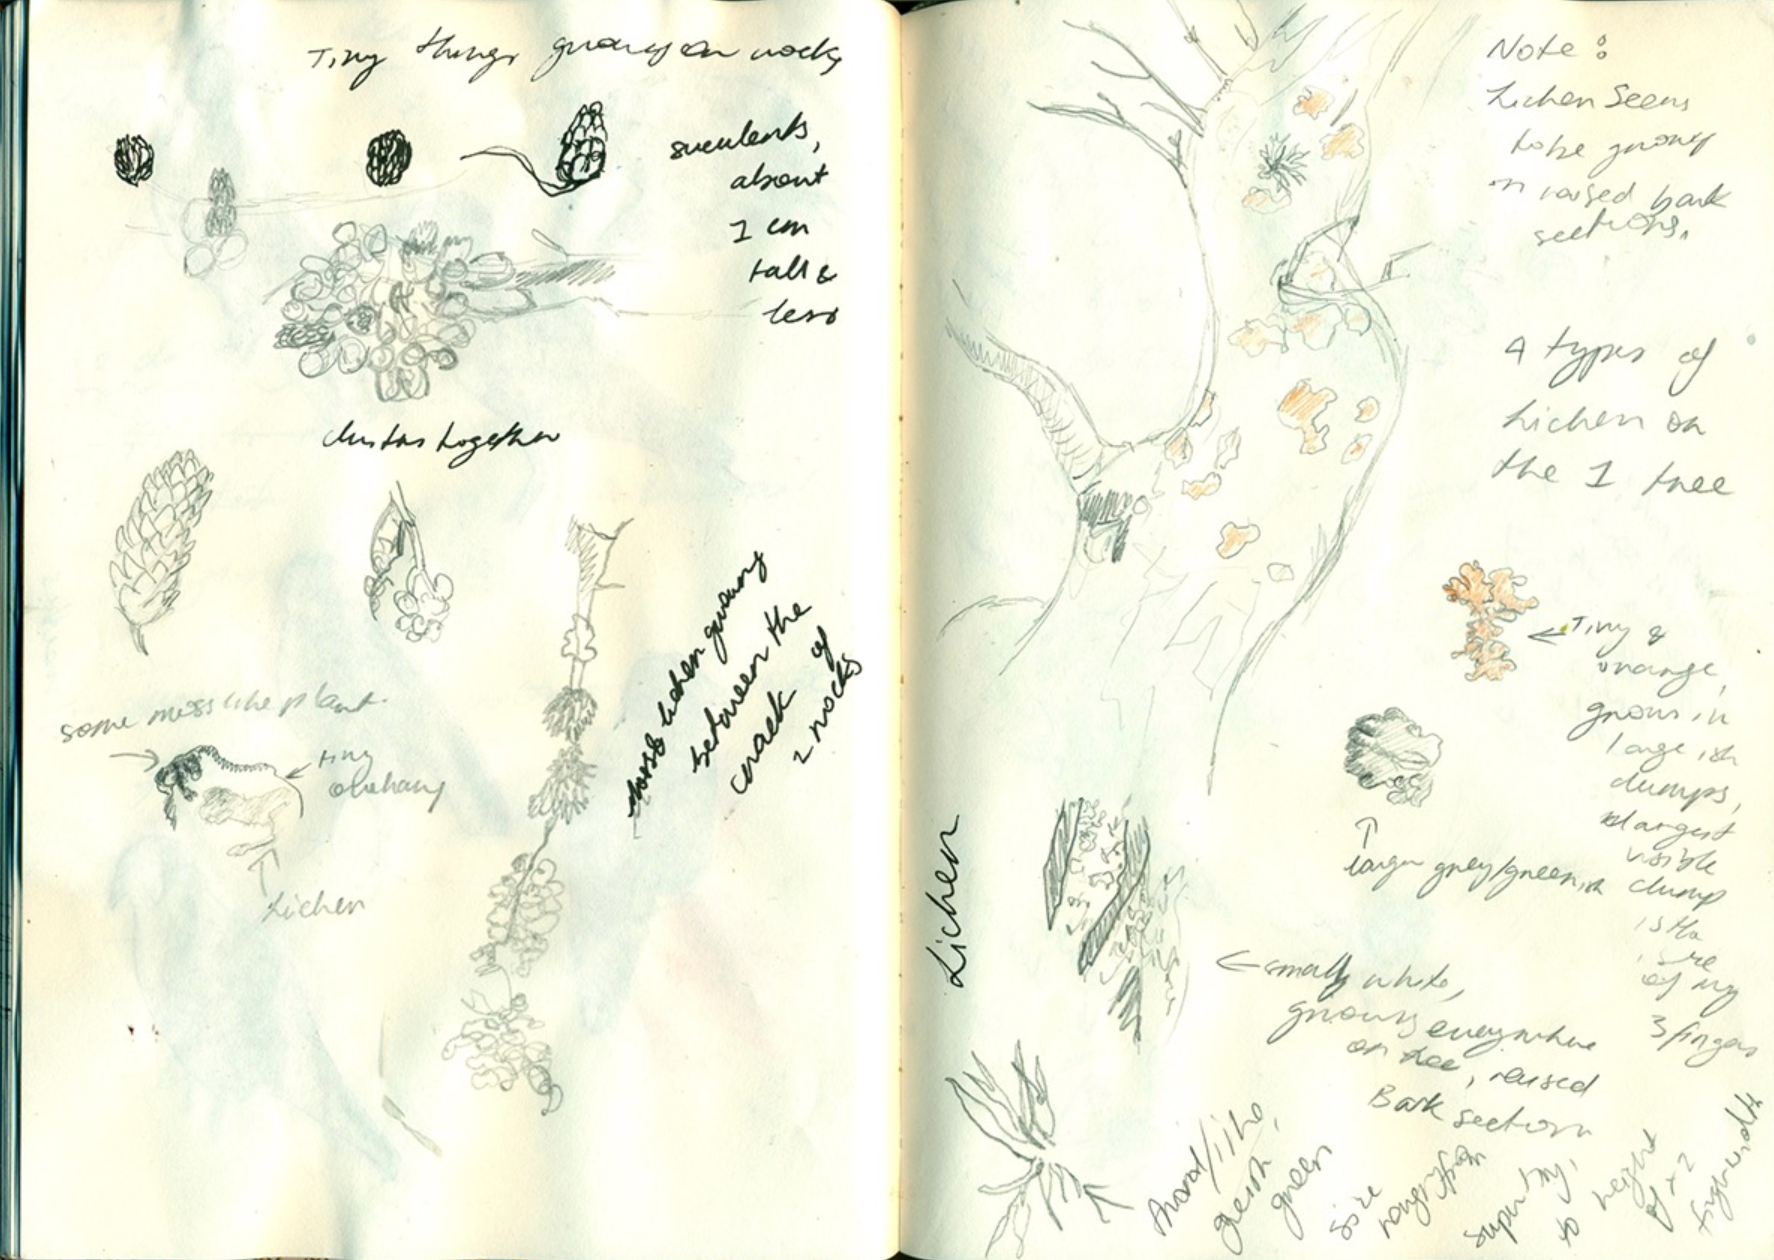 Tiny things growing on rocks
succulents,
about
1 cm
tall &
less
clusters together
some moss like plant.
tiny
Lichen
moss lichen growing
between the
crack of
2 rocks
Note:
Lichen seems
to be growing
on raised bark
sections.
4 types of
Lichen on
the 1 tree
Tiny &
orange,
grows in
large ish
clumps,
largest
visible
clump
is the
size
of my
3 fingers
larger grey/greenish
Lichen
small, white,
grows everywhere
on tree, raised
Bark section
greish
green
size
ranges from
super tiny,
to
height
of x 2
finger width